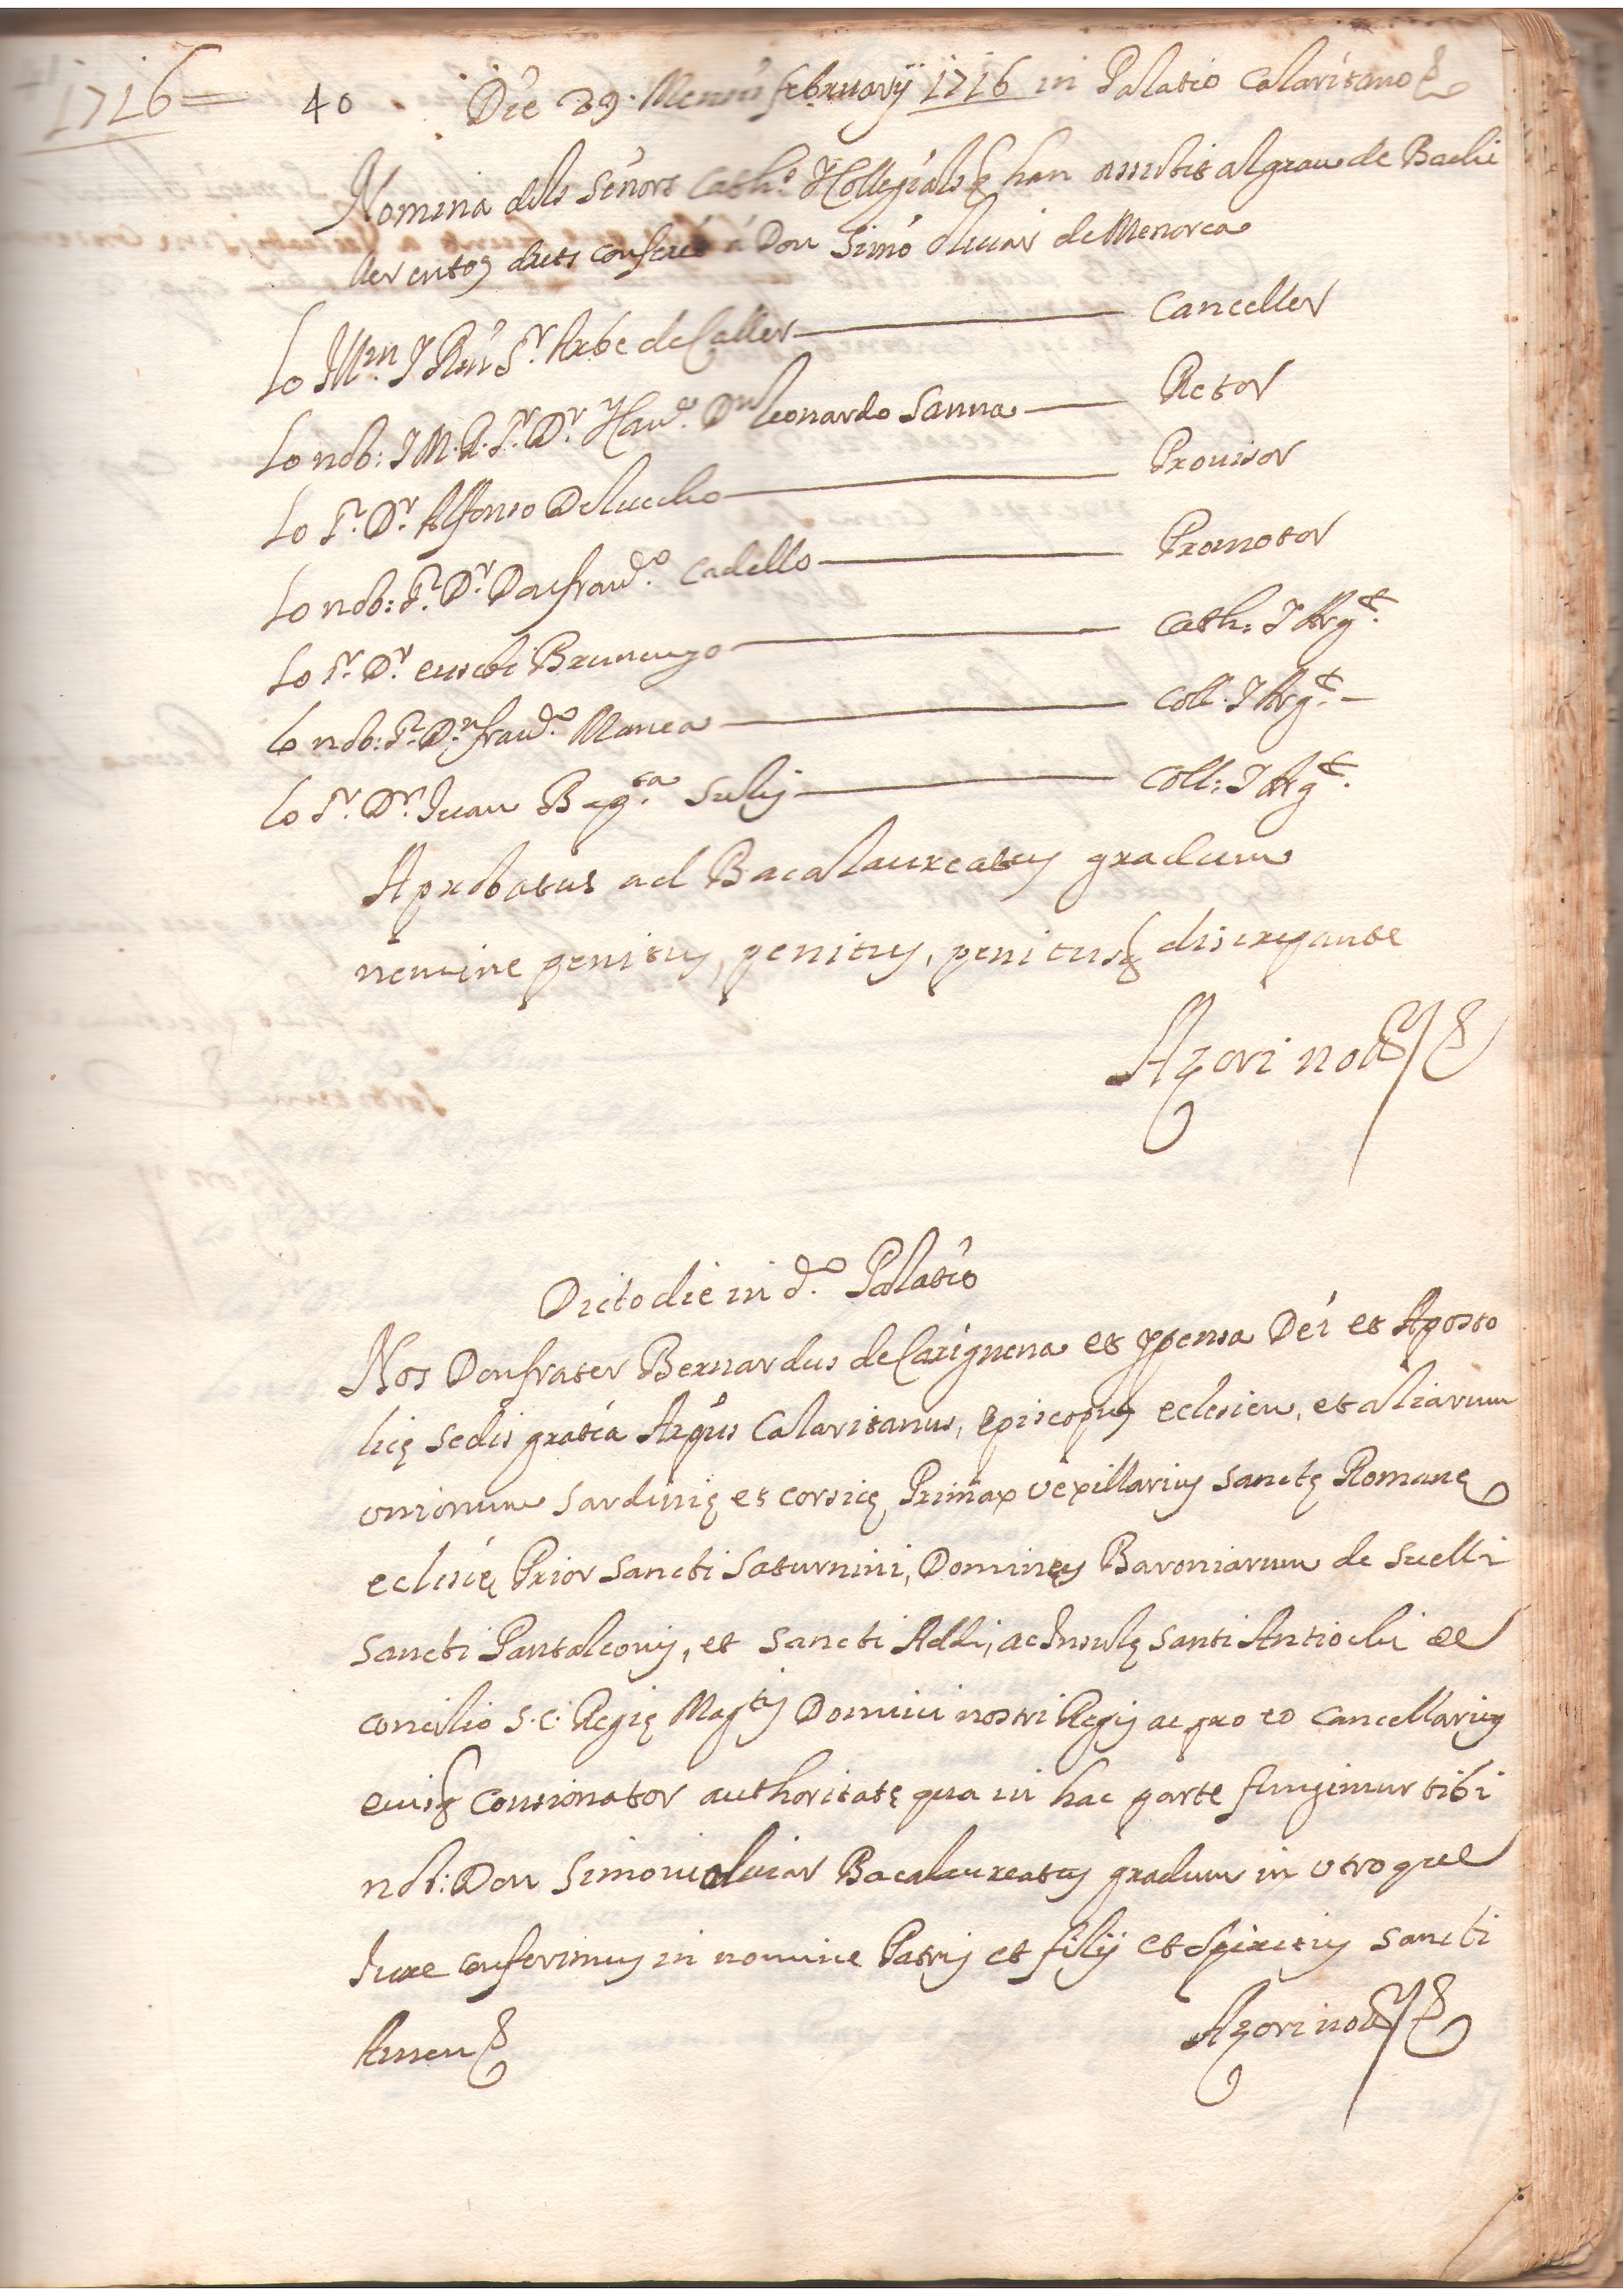 1716
40 . Die 29. Mensis februarij 1716 in Palatio Calaritano
Nomina dels Señors Cath.s Y Collegials q han assistit al grau de Bachi
ller en tos drets conferit á Don Simó olivar de Menorca
Lo Ill.m Y R.m S.r Arbe de Caller — Canceller
Lo nob: Y M. R. S.r D.r Y Can.e D.n Leonardo Sanna — Retor
Lo S.r D.r Alfonso Delvecho — Provisor
Lo nob: S.r D.r Don fran.co Cadello — Promotor
Lo S.r D.r eusebi Brunengo — Cath: Y Arg.t
Lo nob: S.r D.n fran.co Manca — Coll. Y Arg.t
Lo S.r D.r Juan Bap.ta Sulis — Coll: Y Arg.t
Aprobatus ad Bacalaureatus gradum
nemine penitus, penitus, penitusq discrepante
Azori not
Dicto die in d.o Palatio
Nos Don frater Bernardus de Carignena et Ypensa Dei et Aposto
lice sedis gratia Arpus Calaritanus, episcopus eclesien, et aliarum
onionum Sardinię et corsicę Primax vexillarius sanctę Romanę
eclesię Prior Sancti Saturnini, Dominus Baroniarum de Suelli
Sancti Pantaleonis, et Sancti Adli, ac Insulę santi Antiochi de
concilio S. C. Regię Mag.tis Domini nostri Regis ac pro eo Cancellarius
euisq Consionator authoritatę qua in hac parte fungimur tibi
nob: Don Simoni olivar Bacalaureatus gradum in utroque
Iure conferimus in nomine Patris et filij et Spiritus Sancti
Amen
Azori not